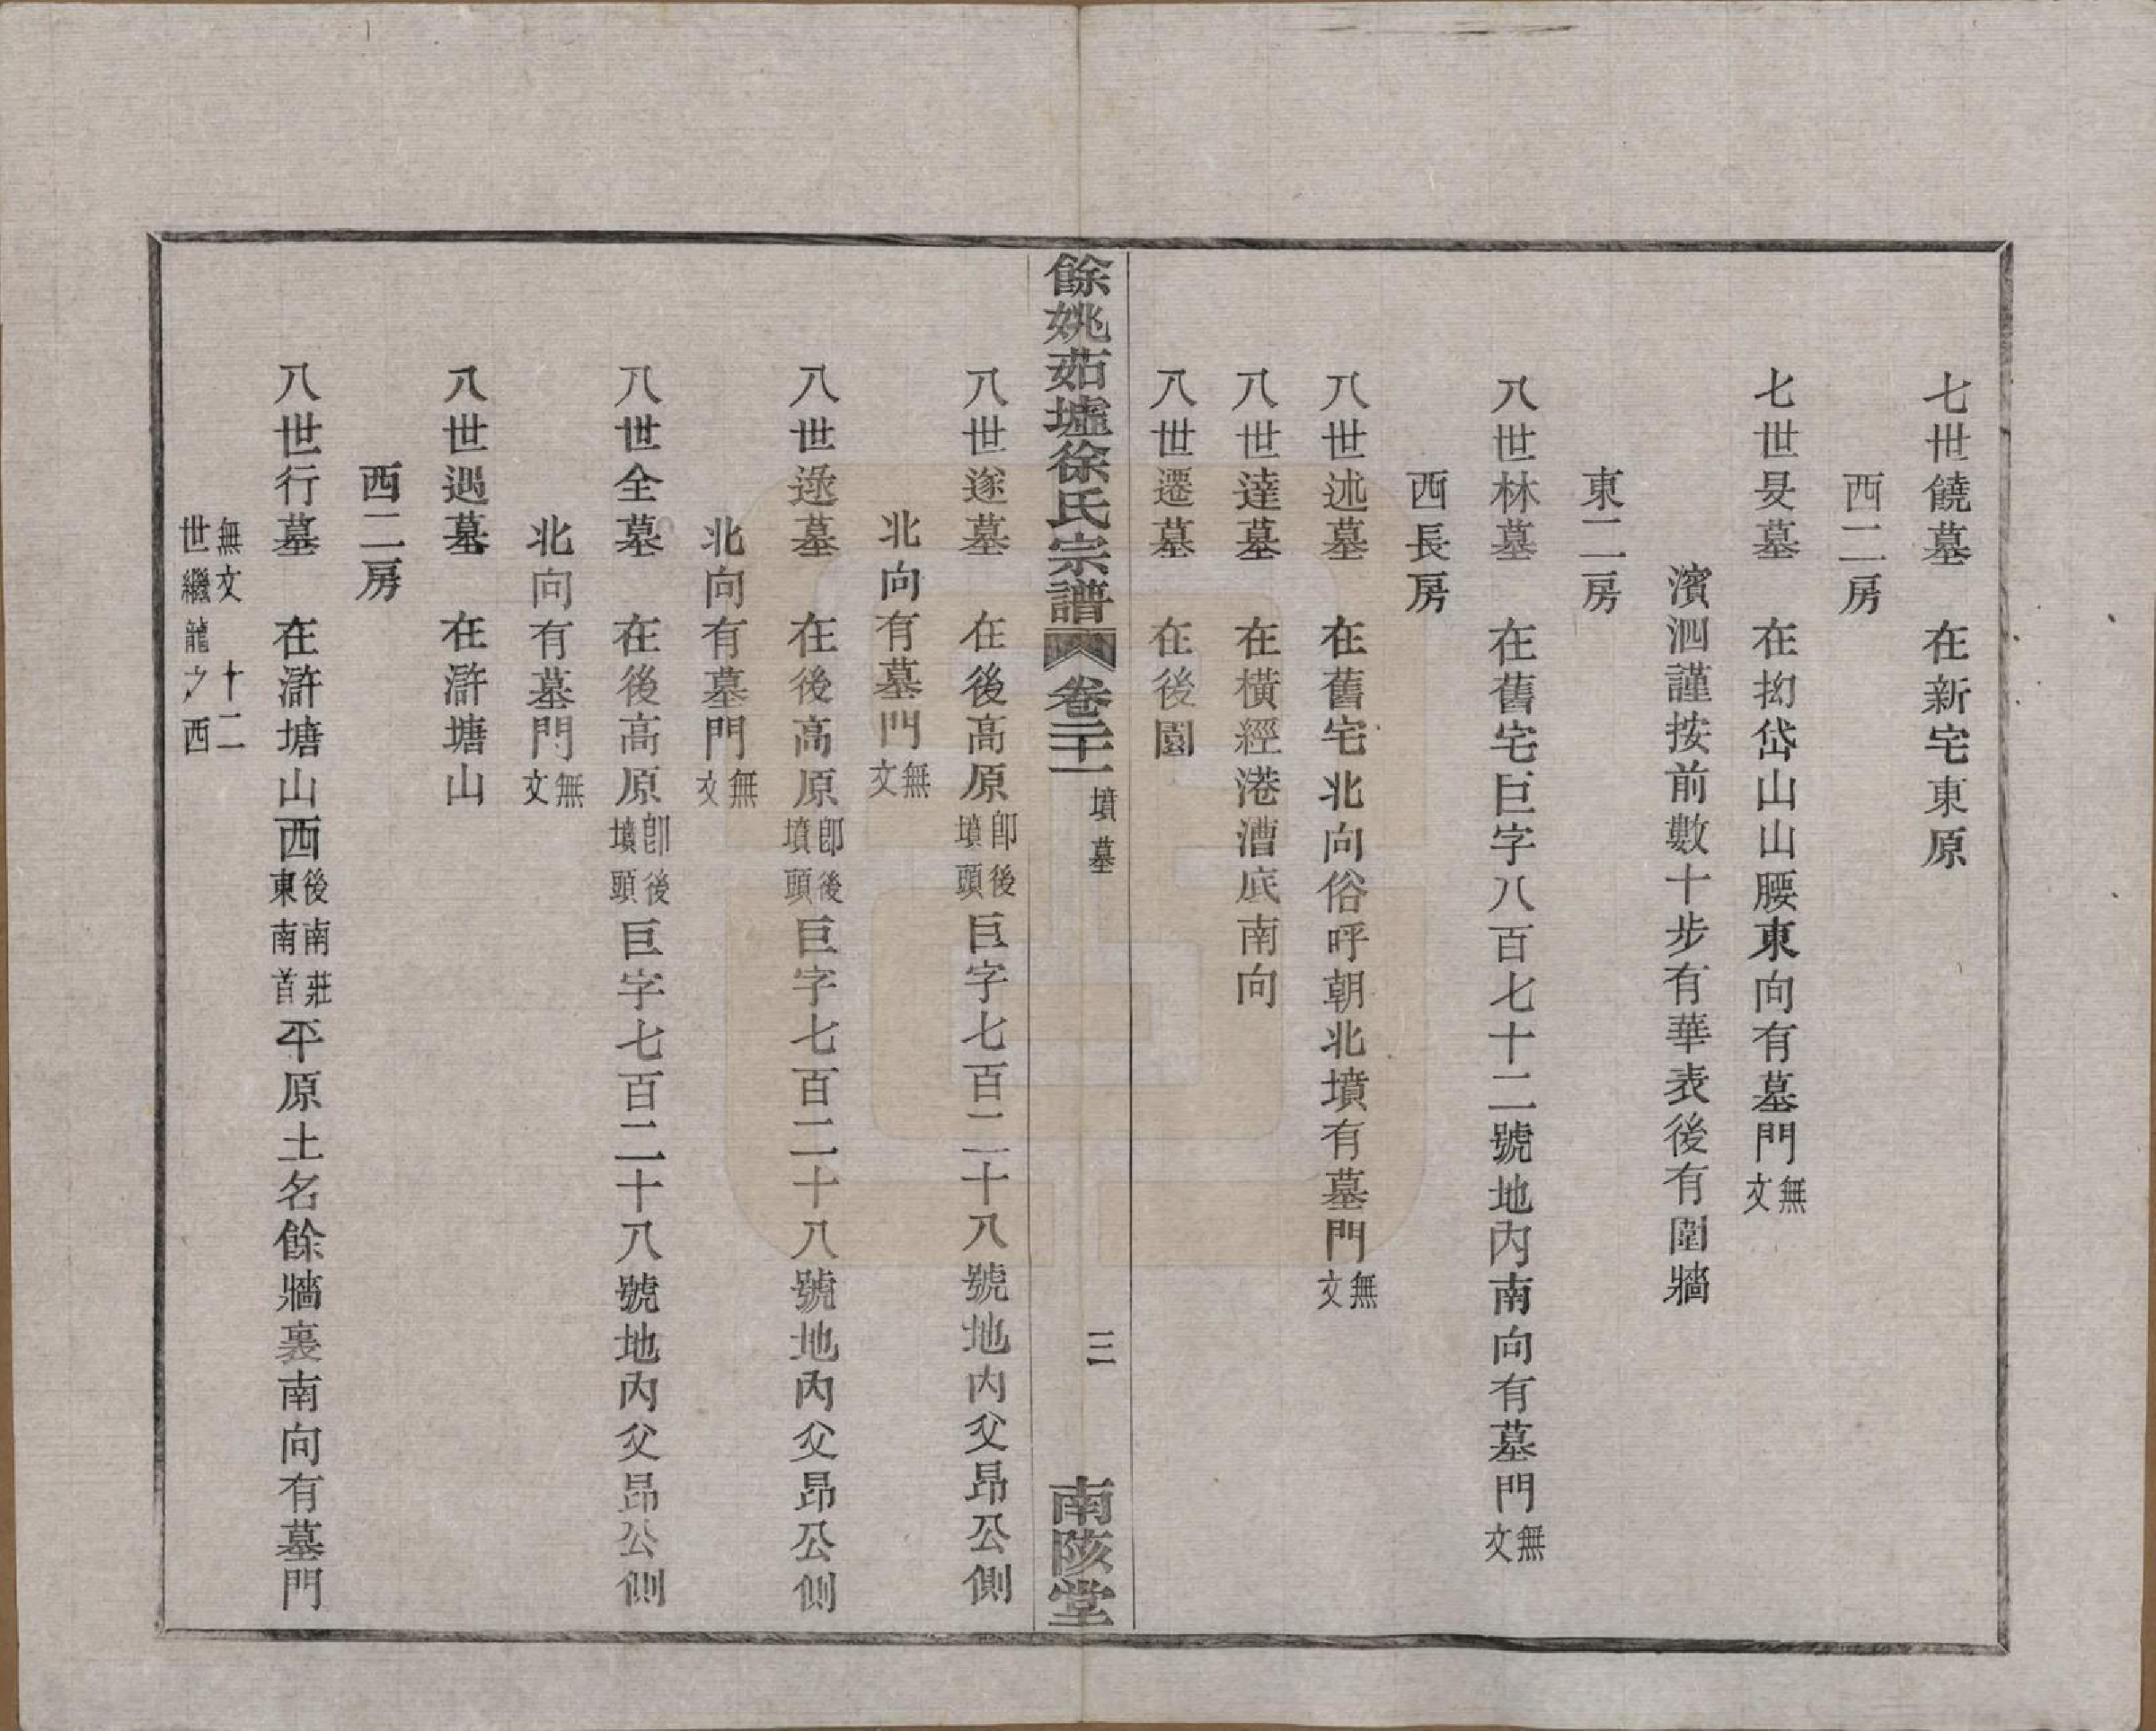 七世饒墓　在新宅東原
西二房
七世旻墓　在抝岱山山腰東向有墓門無文
濱泗謹按前數十步有華表後有圍牆
東二房
八世林墓　在舊宅巨字八百七十二號地內南向有墓門無文
西長房
八世述墓　在舊宅北向俗呼朝北墳有墓門無文
八世達墓　在橫經港漕底南向
八世遷墓　在後園
餘姚茹墟徐氏宗譜　卷二十一　墳墓　三　南陔堂
八世遂墓　在後高原卽後墳頭巨字七百二十八號地內父昂公側
北向有墓門無文
八世逯墓　在後高原卽後墳頭巨字七百二十八號地內父昂公側
北向有墓門無文
八世全墓　在後高原卽後墳頭巨字七百二十八號地內父昂公側
北向有墓門無文
八世遇墓　在滸塘山
西二房
八世行墓　在滸塘山西後南莊東南首平原土名餘牆裏南向有墓門
無文　十二世繼龍之西